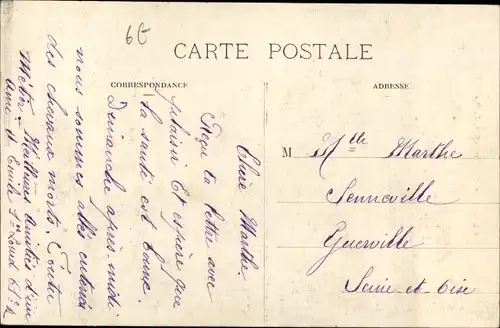 6G
CARTE POSTALE
CORRESPONDANCE
ADRESSE
Chère Marthe
Reçu ta lettre avec
plaisir Et espère que
la santé est bonne.
Dimanche après-midi
nous sommes allés enterrés
des chevaux morts.
Métier. Meilleures amitiés d'un
ami Emile
M Mlle Marthe
Senneville
Guerville
Seine et Oise